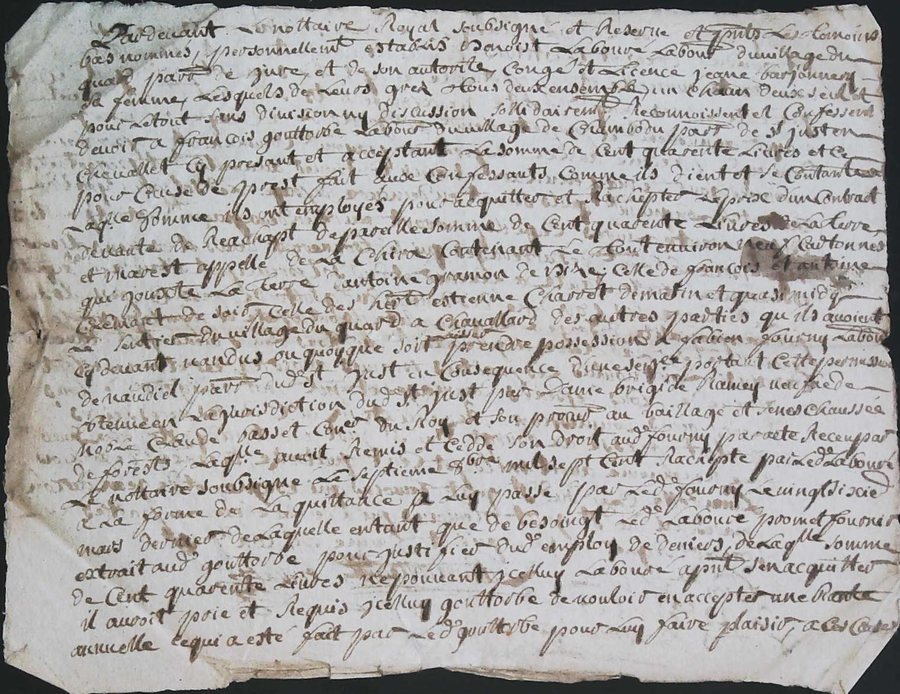 Pardevant Le nottaire Royal soubsigné et Reservé et pnts Les temoins
bas nommes, personnellemt establis Benoist Laboure Labour du village du
quard parr de Jure, et de son autorite, Congé et Licence jeane barjonney
sa femme, Lesquels de Leurs grez tous deux ensemble un chacun deux seul et
pour Letout sans division ny discussion sollidairemt Reconnoissent et Confessent
devoir a françois gouttorbe Labour du village de Chambodu parr de st just en
Chevallet Cy presant et acceptant La somme de Cent quarente Livres et Ce
pour Cause de prest fait Confessants Comme ils dient et se Contantes
Laqle somme ils ont employes pour acquitter et Rachepter Le prix dun Contract
devente de Reachapt de pareille somme de Cent quarente Livres de La terre
et Marest appellé de La Chirat Contenant Le tout environ neuf Cartonnes
que Jouxte La terre dantoine gramon de ; Celle de françois et antoine
de soir, Celle des estienne Charret de matin et quasi midy
Le sentier du village du quard a Chavallard des autres parties qu ils avoient
Cy devant vandus ou quoy que soit Laissé prendre possession a fabien fourny Labour
de naudiel parr dud st Just en Consequence dune portant Cette permission
obtenue en La Jurisdiction dud st Just par Damie brigide Ramey veufve de
Noble Claude basset Coner du Roy et son procur au baillage et seneschaussée
de forests, Laqlle auroit Remis et Ceddé son droit aud fourny par acte Receu par
Le nottaire soubsigné Le septieme 8bre mil sept Cent Rachepté par Led Laboure
a La forme de La quittance a Luy passe par Led fourny Le vingt sixie
mars dernier de Laquelle entant que de besoingt Led Laboure promet fournir
extrait aud gouttorbe pour Justifier dud employ de deniers, de Laqlle somme
de Cent quarente Livres ne pouvant jcelluy Laboure apnt s'en acquitter
il auroit prie et Requis jcelluy gouttorbe de vouloir en accepter une Rante
annuelle Ce qui a este fait par Led gouttorbe pour Luy faire plaisir, a Ces Causes